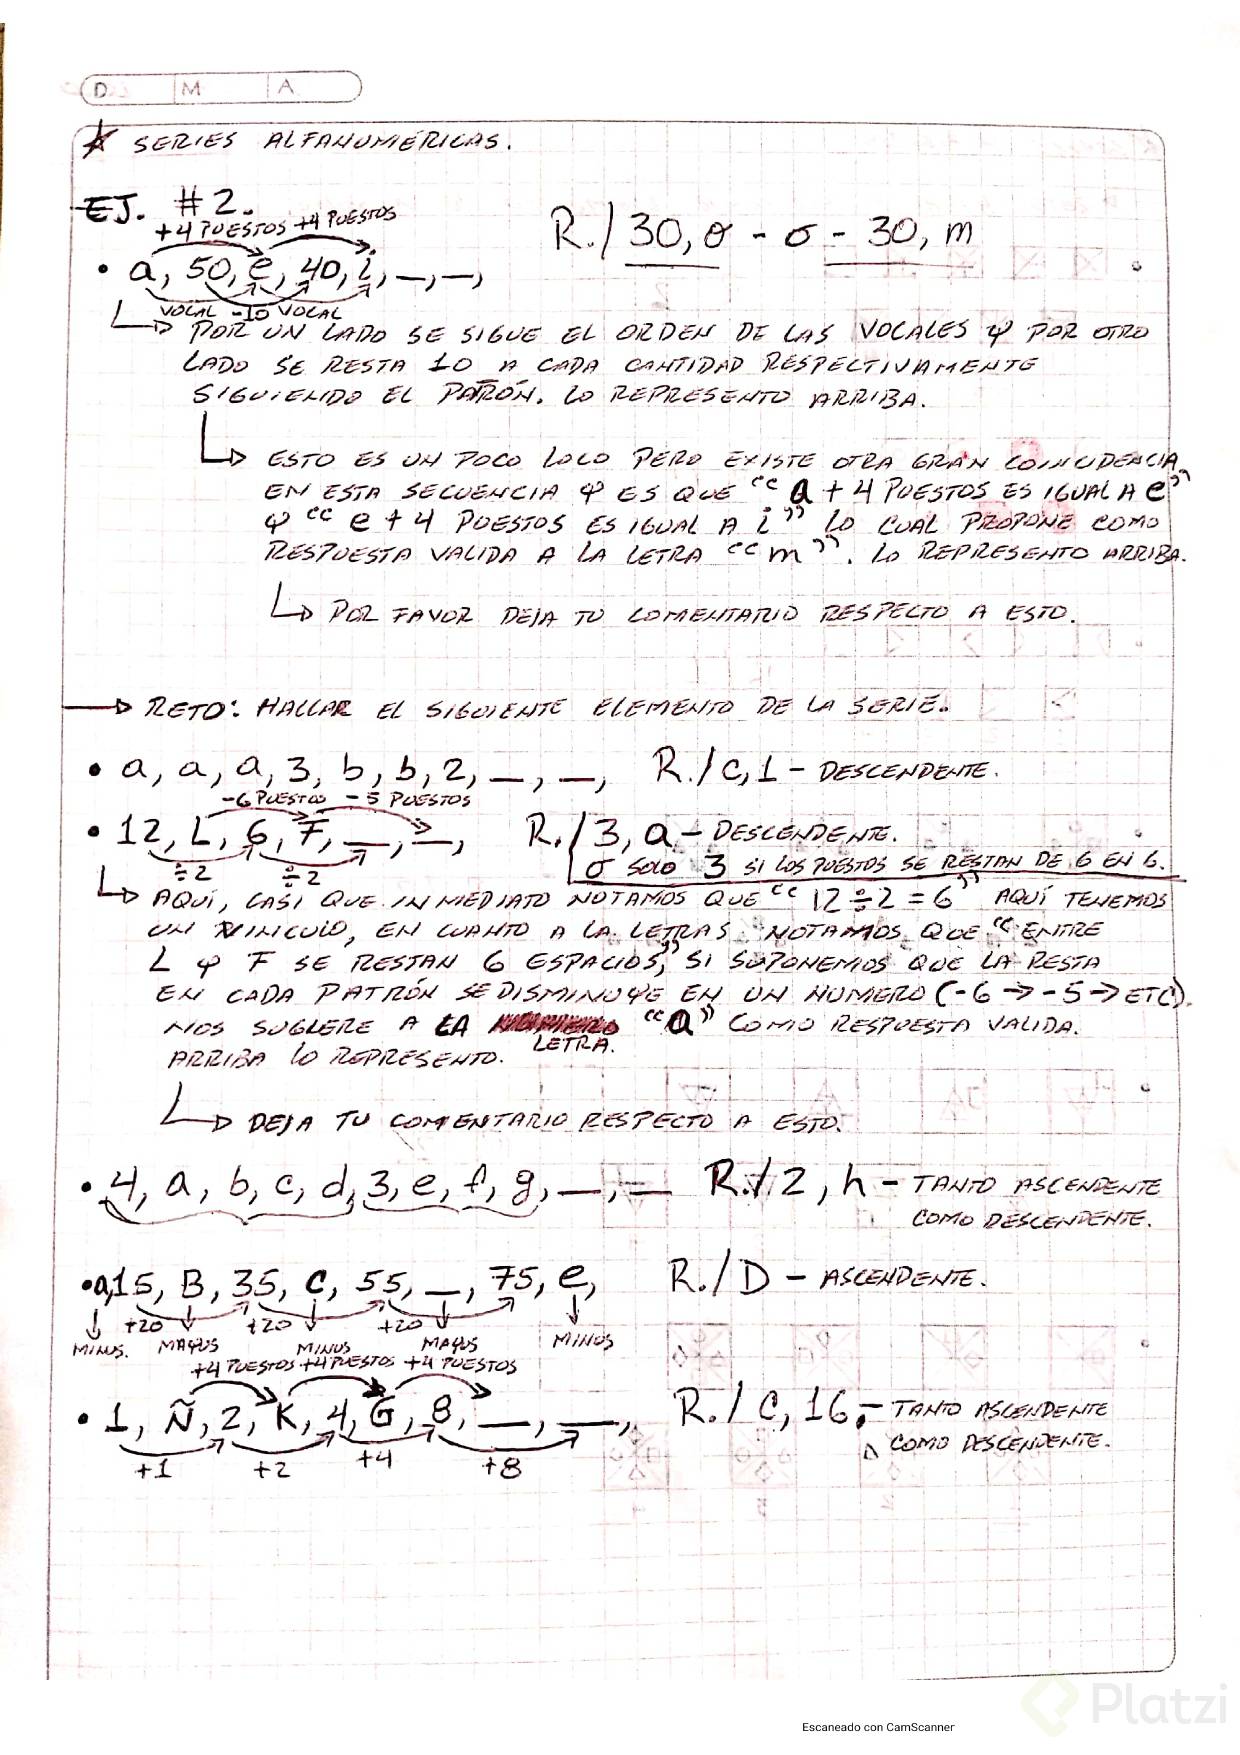 D M A
* SERIES ALFANUMÉRICAS.
EJ. #2.
+4 PUESTOS +4 PUESTOS
R./ 30, o - o - 30, m
• a, 50, e, 40, i, _, _,
VOCAL -10 VOCAL
POR UN LADO SE SIGUE EL ORDEN DE LAS VOCALES Y POR OTRO
LADO SE RESTA 10 A CADA CANTIDAD RESPECTIVAMENTE
SIGUIENDO EL PATRÓN. LO REPRESENTO ARRIBA.
ESTO ES UN POCO LOCO PERO EXISTE OTRA GRAN COINCIDENCIA
EN ESTA SECUENCIA Y ES QUE “a + 4 PUESTOS ES IGUAL A e”
Y “e + 4 PUESTOS ES IGUAL A i” LO CUAL PROPONE COMO
RESPUESTA VALIDA A LA LETRA “m”. LO REPRESENTO ARRIBA.
POR FAVOR DEJA TU COMENTARIO RESPECTO A ESTO.
RETO: HALLAR EL SIGUIENTE ELEMENTO DE LA SERIE.
• a, a, a, 3, b, b, 2, _, _, R./ C, 1 - DESCENDENTE.
-6 PUESTOS -5 PUESTOS
• 12, L, 6, F, _, _, R./ 3, a - DESCENDENTE.
÷2 ÷2
o SOLO 3 SI LOS PUESTOS SE RESTAN DE 6 EN 6.
AQUÍ, CASI QUE INMEDIATO NOTAMOS QUE “12÷2=6” AQUÍ TENEMOS
UN VINICULO, EN CUANTO A LA LETRAS NOTAMOS QUE “ENTRE
L Y F SE RESTAN 6 ESPACIOS”, SI SUPONEMOS QUE LA RESTA
EN CADA PATRÓN SE DISMINUYE EN UN NUMERO (-6→-5→ETC).
NOS SUGIERE A LA LETRA. “a” COMO RESPUESTA VALIDA.
ARRIBA LO REPRESENTO.
DEJA TU COMENTARIO RESPECTO A ESTO.
• 4, a, b, c, d, 3, e, f, g, _, _ R./ 2, h - TANTO ASCENDENTE
COMO DESCENDENTE.
• a, 15, B, 35, C, 55, _, 75, e, R./ D - ASCENDENTE.
+20 +20 +20
MINUS. MAYUS MINUS MAYUS MINUS
+4 PUESTOS +4 PUESTOS +4 PUESTOS
• 1, Ñ, 2, K, 4, G, 8, _, _, R./ C, 16, - TANTO ASCENDENTE
COMO DESCENDENTE.
+1 +2 +4 +8
Platzi
Escaneado con CamScanner